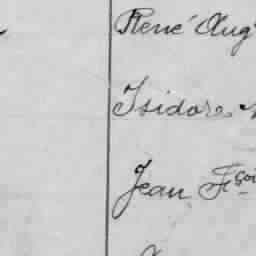 René Aug
Isidore
Jean Fçoi